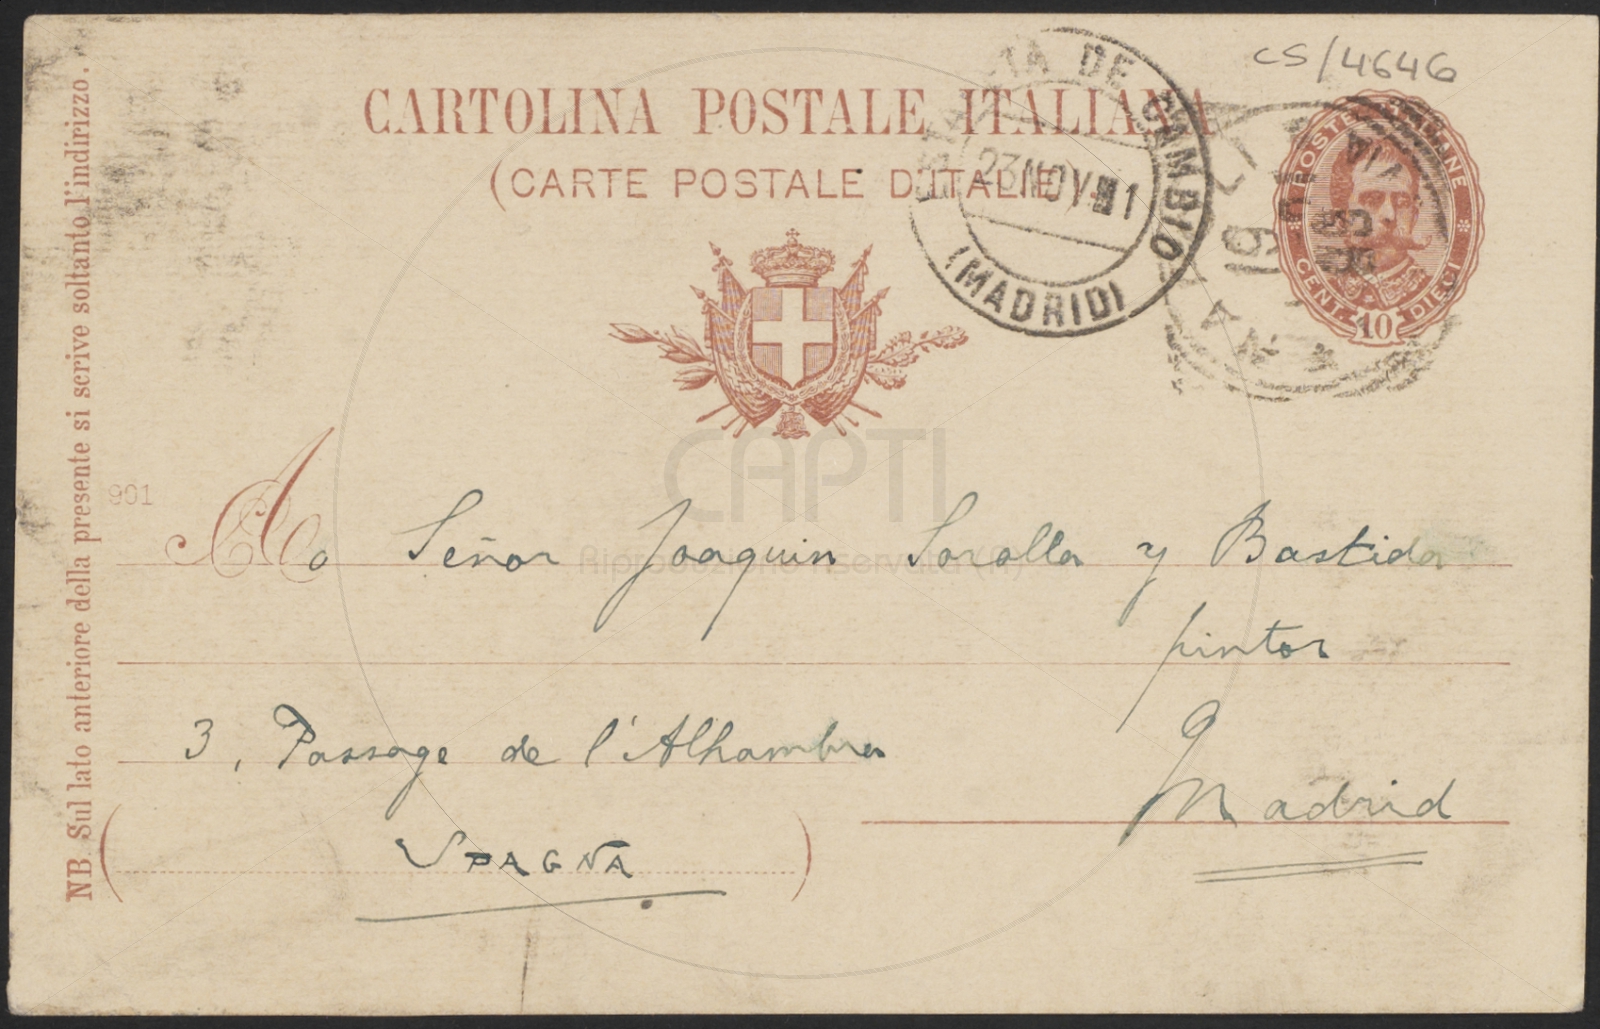 CS/4646
CARTOLINA POSTALE ITALIANA
(CARTE POSTALE D'ITALIE)
DE CAMBIO
23 NOV 1
(MADRID)
POSTE ITALIANE
CENT. 10 DIECI
NB. Sul lato anteriore della presente si scrive soltanto l'indirizzo.
901
CAPTI
Riproduzione riservata (R)
A Señor Joaquin Sorolla y Bastida
pintor
3, Passage de l'Alhambra
Madrid
(SPAGNA)